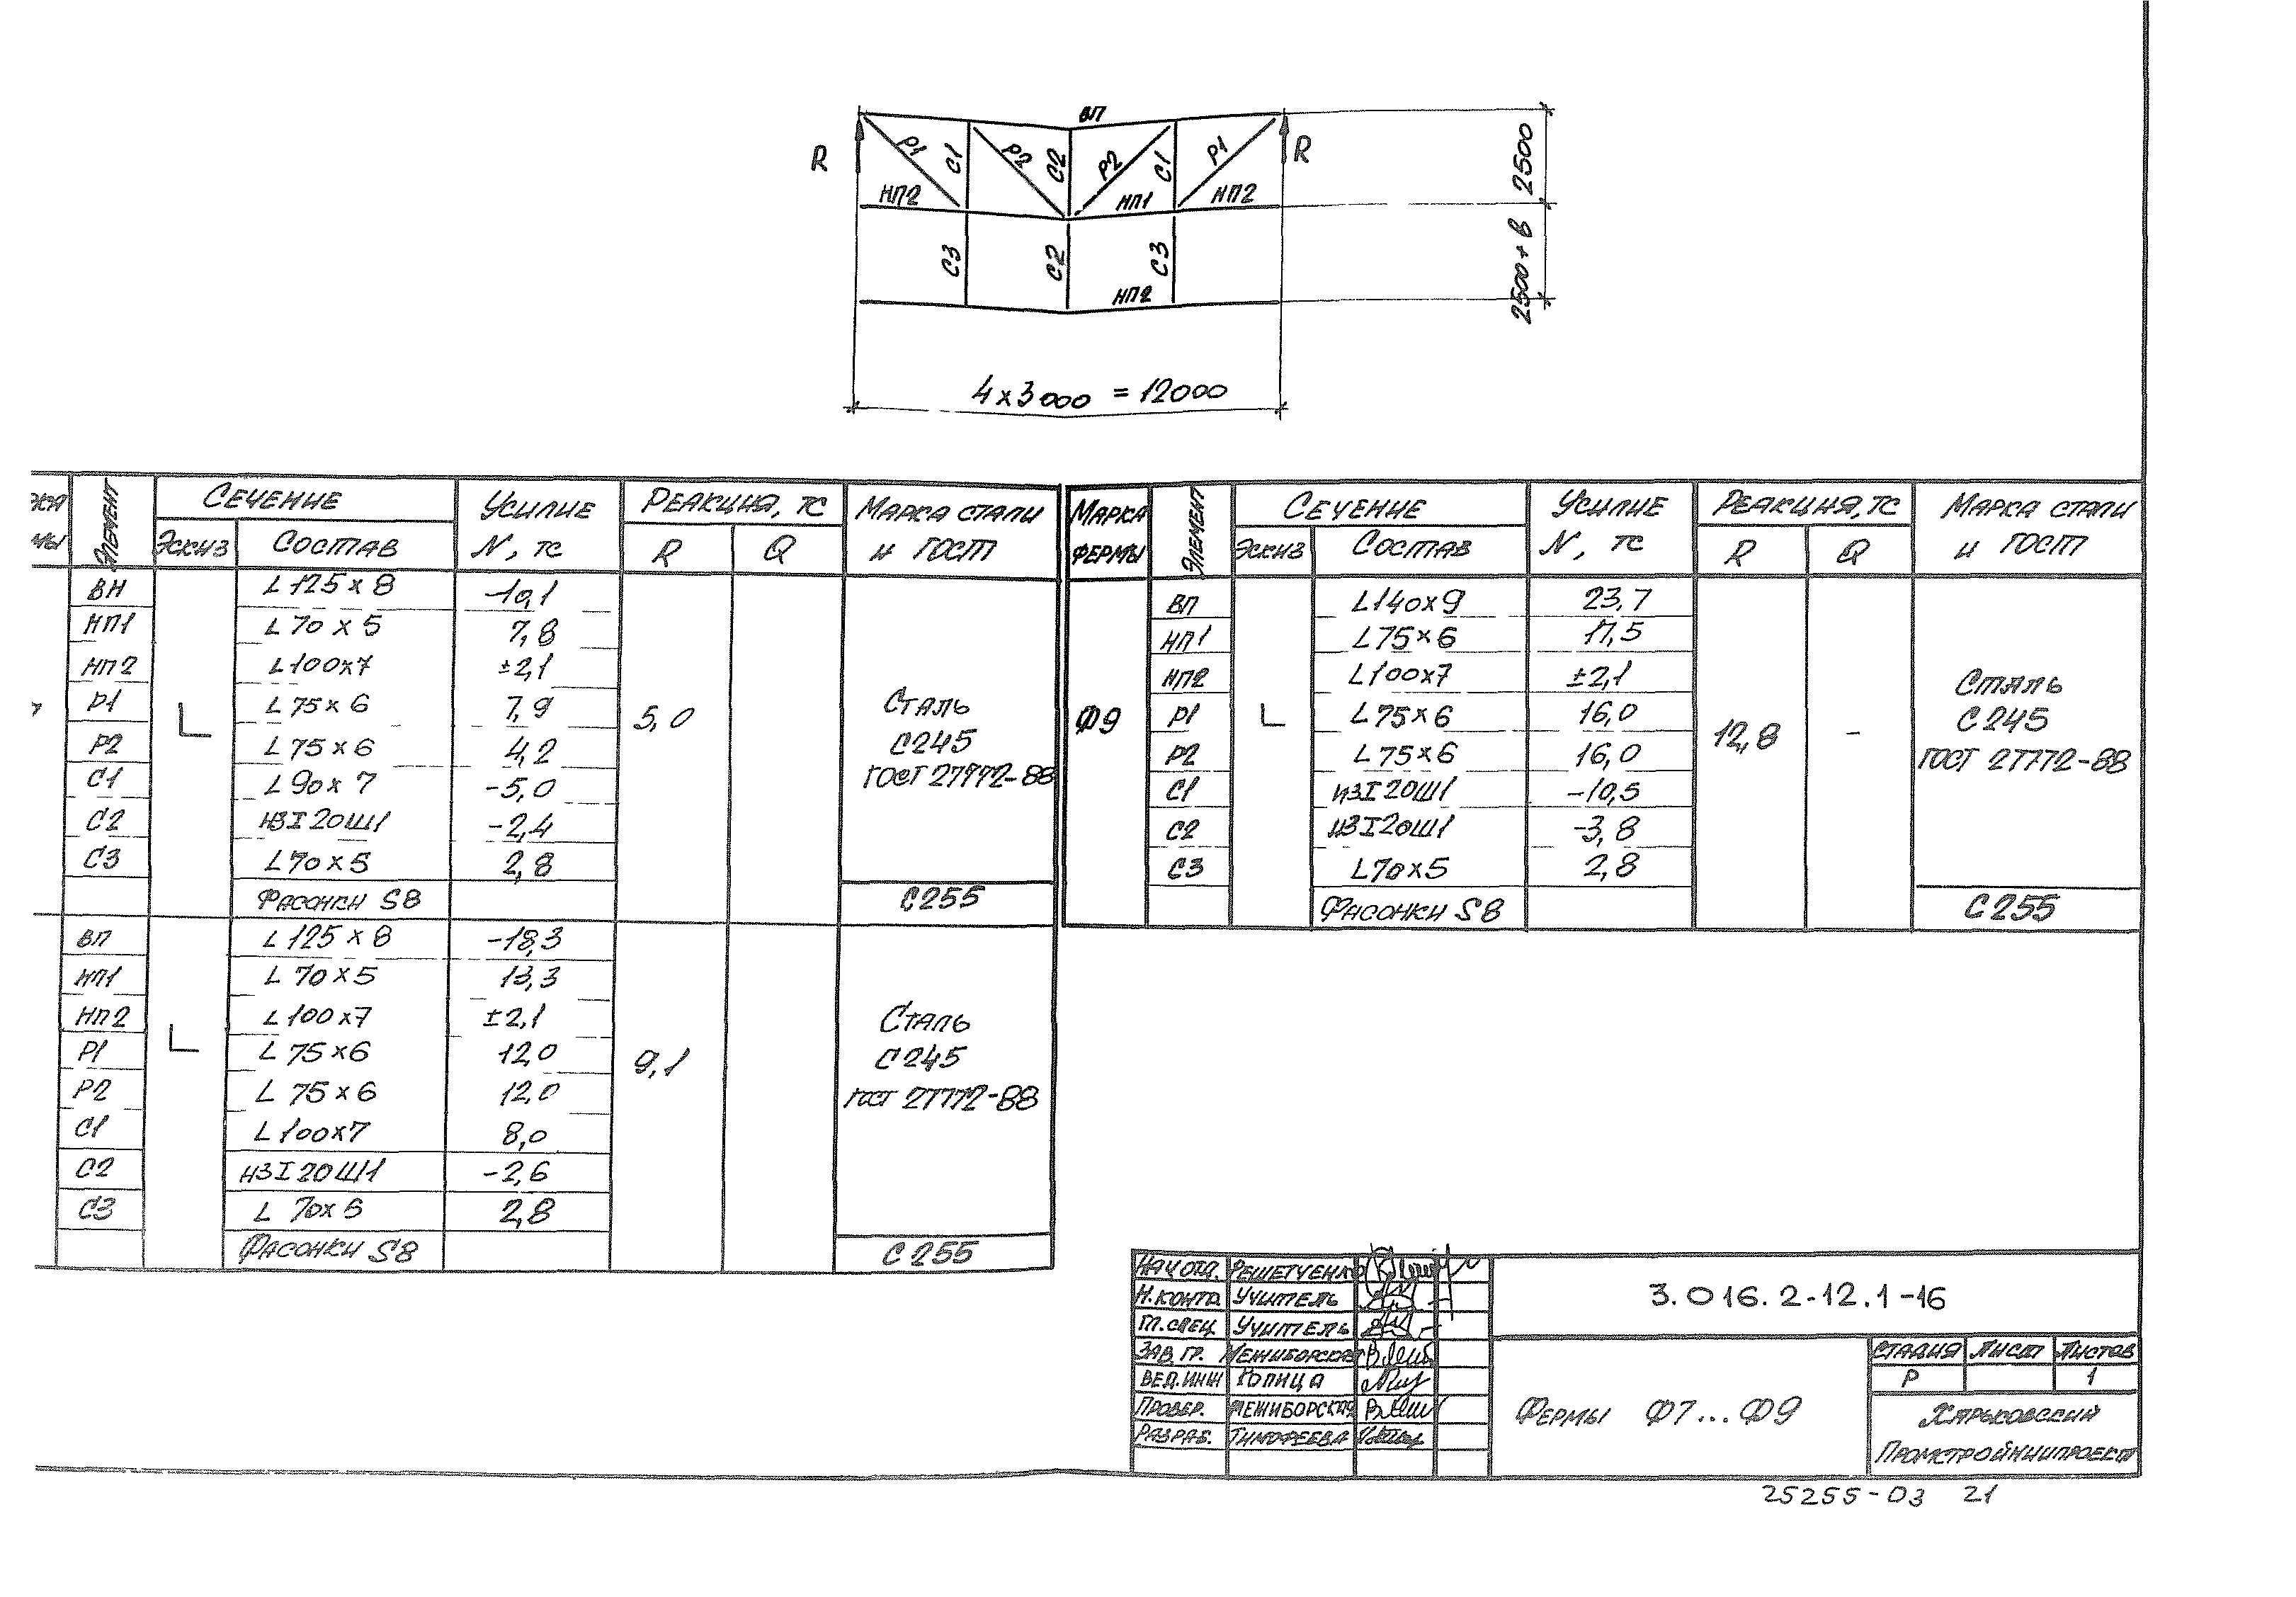 ВП
R
Р1
С1
Р2
С2
Р2
С1
Р1
R
НП2
НП1
НП2
2500
С3
С2
С3
НП2
2500+В
4х3000 = 12000
РКА
МЫ
ЭЛЕМЕНТ
СЕЧЕНИЕ
УСИЛИЕ
РЕАКЦИЯ, ТС
МАРКА СТАЛИ
ЭСКИЗ
СОСТАВ
N, ТС
R
Q
И ГОСТ
ВН
L125х8
-10,1
НП1
L70х5
7,8
НП2
L100х7
±2,1
Р1
L75х6
7,9
5,0
СТАЛЬ
Р2
L75х6
4,2
С245
С1
L90х7
-5,0
ГОСТ 27772-88
С2
ИЗ I 20Ш1
-2,4
С3
L70х5
2,8
ФАСОНКИ S8
С255
ВП
L125х8
-18,3
НП1
L70х5
13,3
НП2
L100х7
±2,1
СТАЛЬ
Р1
L75х6
12,0
9,1
С245
Р2
L75х6
12,0
ГОСТ 27772-88
С1
L100х7
8,0
С2
ИЗ I 20Ш1
-2,6
С3
L70х5
2,8
ФАСОНКИ S8
С255
МАРКА
ФЕРМЫ
ЭЛЕМЕНТ
СЕЧЕНИЕ
УСИЛИЕ
РЕАКЦИЯ, ТС
МАРКА СТАЛИ
ЭСКИЗ
СОСТАВ
N, ТС
R
Q
И ГОСТ
ВП
L140х9
23,7
НП1
L75х6
17,5
НП2
L100х7
±2,1
СТАЛЬ
Ф9
Р1
L75х6
16,0
12,8
-
С245
Р2
L75х6
16,0
ГОСТ 27772-88
С1
ИЗ I 20Ш1
-10,5
С2
ИЗ I 20Ш1
-3,8
С3
L70х5
2,8
ФАСОНКИ S8
С255
НАЧ ОТД. РЕШЕТЧЕНКО
Н.КОНТР. УЧИТЕЛЬ
ГЛ.СПЕЦ. УЧИТЕЛЬ
ЗАВ ГР. МЕЖИБОРСКАЯ
ВЕД.ИНЖ КОПИЦА
ПРОВЕР. МЕЖИБОРСКАЯ
РАЗРАБ. ТИМОФЕЕВА
3.016.2-12.1-16
ФЕРМЫ Ф7...Ф9
СТАДИЯ ЛИСТ ЛИСТОВ
Р 1
ХАРЬКОВСКИЙ
ПРОМСТРОЙНИИПРОЕКТ
25255-03 21